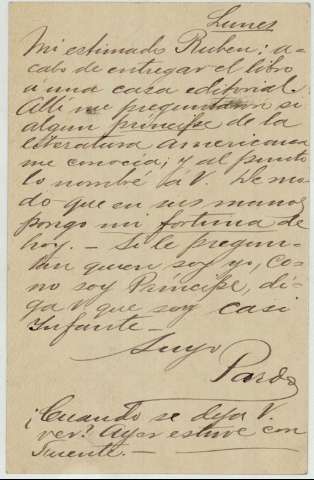 Lunes
Mi estimado Ruben: a-
cabo de entregar el libro
á una casa editorial.
Allí me preguntaron si
algun príncipe de la
literatura americana
me conocía; y al punto
lo nombré á V. De mo-
do que en sus manos
pongo mi fortuna de
hoy. — Si le pregun-
tan quien soy yo, co-
mo soy Príncipe, dí-
ga V que soy casi
Infante —
Suyo
Pardo
¿Cuando se deja V.
ver? Ayer estuve con